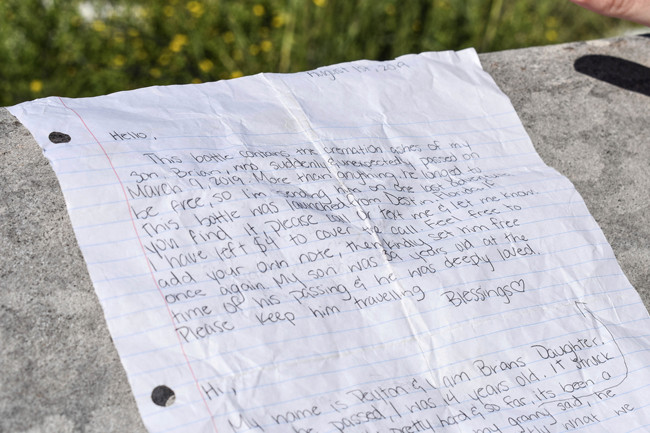 August 1st, 2019
Hello,
This bottle contains the cremation ashes of my
son, Brian, who suddenly & unexpectedly passed on
March 9, 2019. More than anything, he longed to
be free, so I'm sending him on one last adventure.
This bottle was launched from Destin, FL
you find it, please call or text me & let me know.
I have left $4 to cover the call. Feel free to
add your own note, then kindly set him free
once again. My son was 39 years old at the
time of his passing & he was deeply loved.
Please keep him travelling Blessings♡
Hi,
My name is Peyton & I am Brians Daughter.
he passed, I was 14 years old. It struck
pretty hard & so far its been a
my granny said he
what we